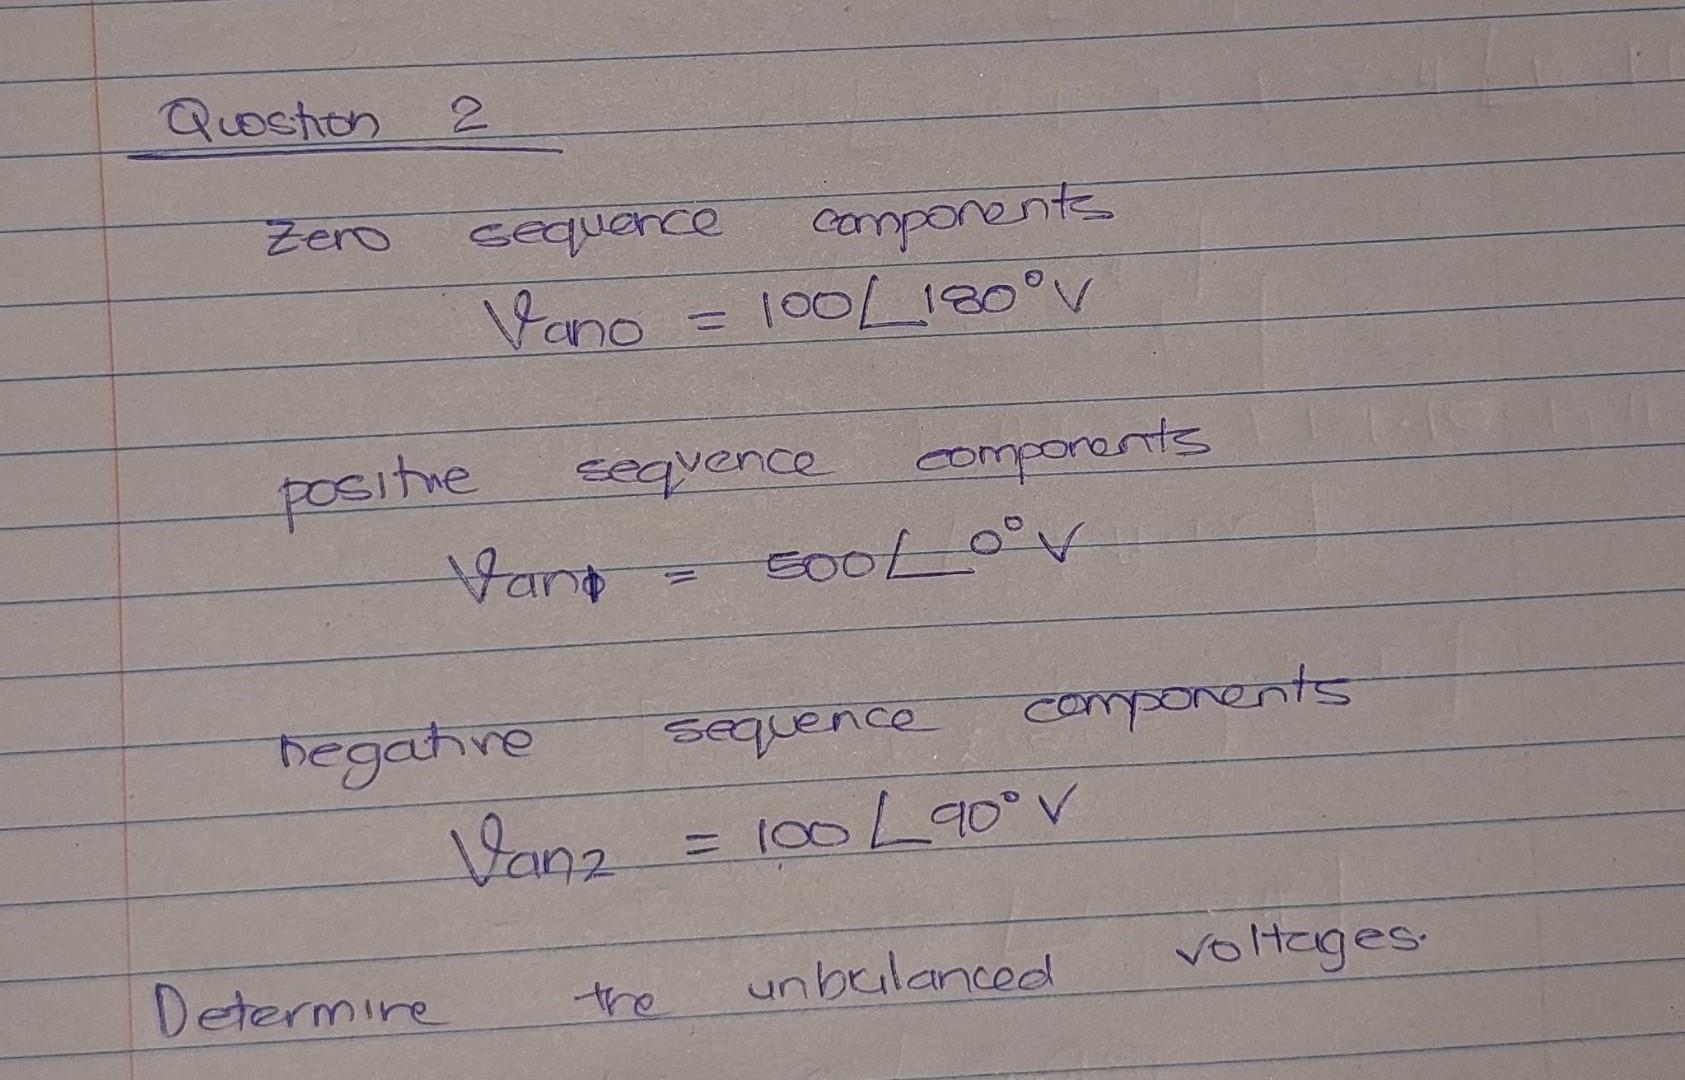 Question 2
Zero sequence components
Vano = 100∠180°V
positive sequence components
Van1 = 500∠0°V
negative sequence components
Van2 = 100∠90°V
Determine the unbalanced voltages.